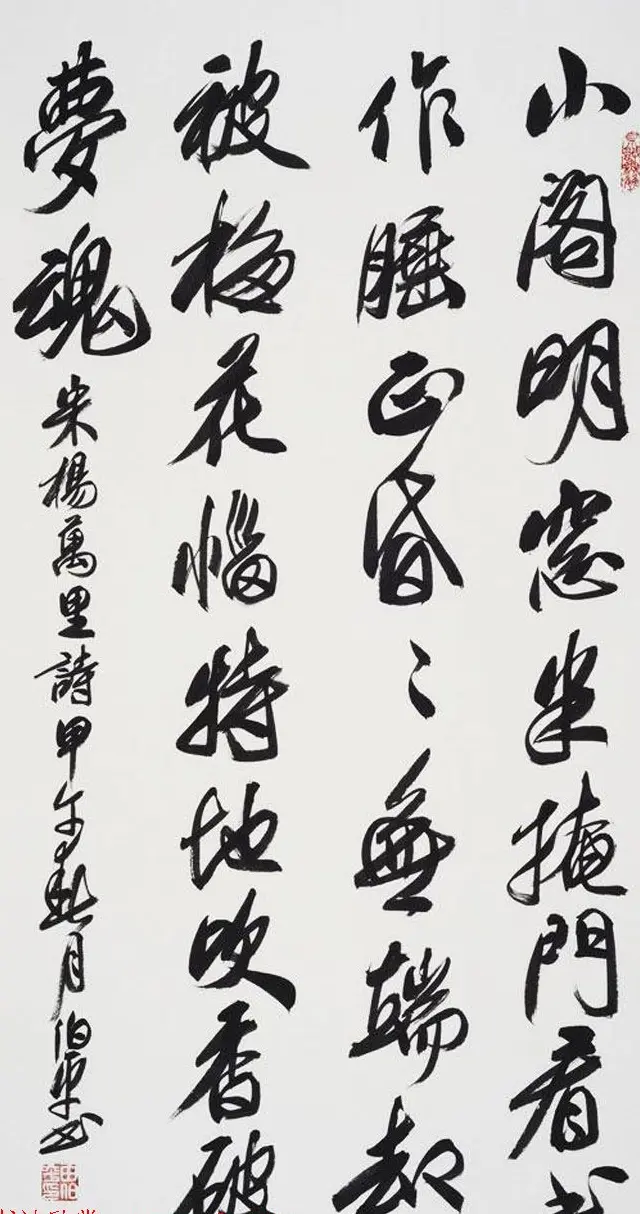 小閣明窓半掩門看書
作睡正昏〻無端却
被梅花惱特地吹香破
夢魂 宋楊萬里詩甲午秋月伯平书